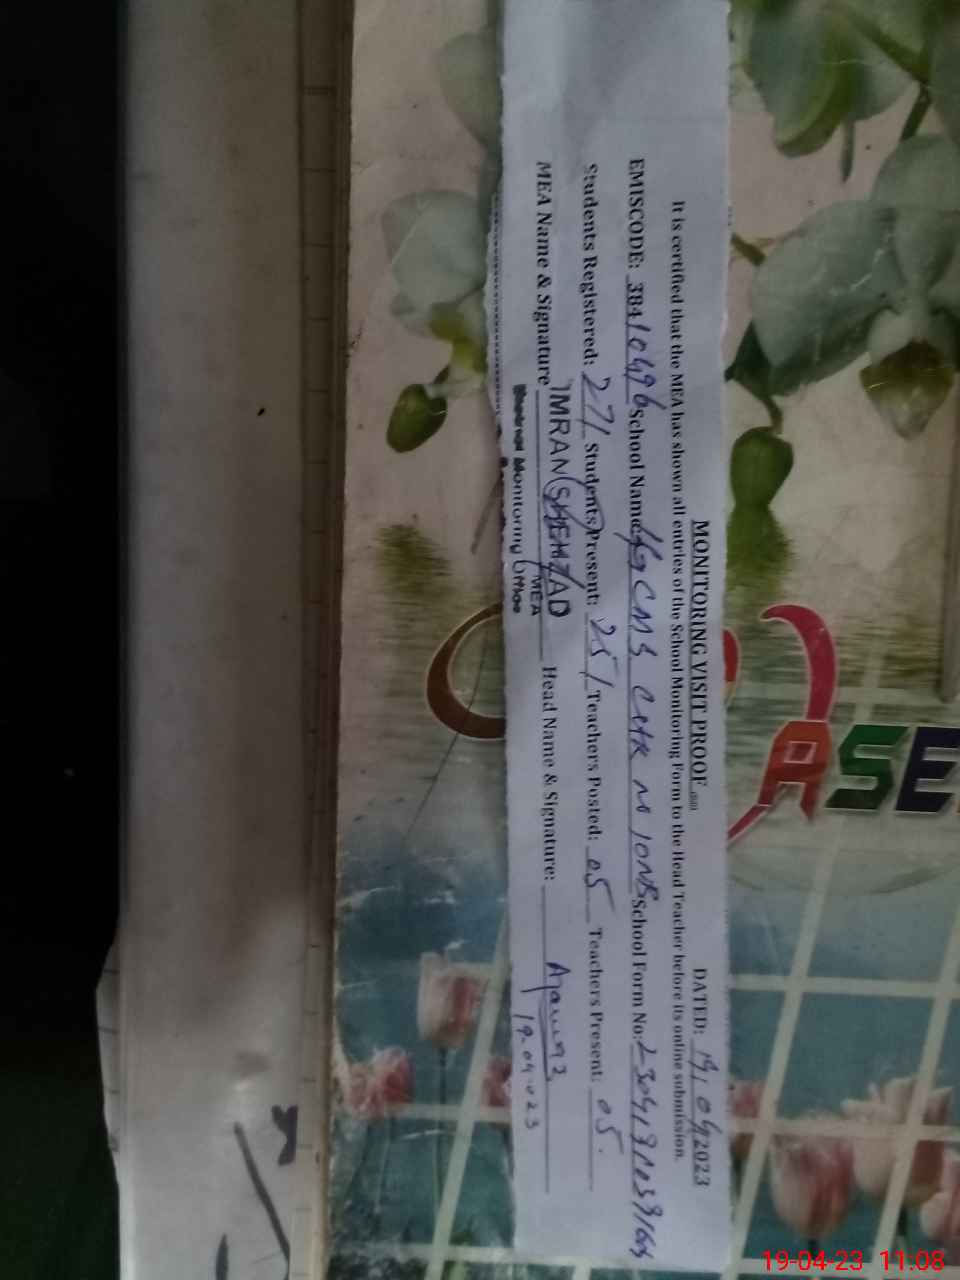 MONITORING VISIT PROOF DATED: 19/04/2023
It is certified that the MEA has shown all entries of the School Monitoring Form to the Head Teacher before its online submission.
EMISCODE: 38410496 School Name: CMS CHK School Form No:
Students Registered: 271 Students Present: 251 Teachers Posted: 05 Teachers Present: 05.
MEA Name & Signature IMRAN SHEHZAD Head Name & Signature:
MEA 19.04.023
Monitoring Office
ASE
19-04-23 11:08